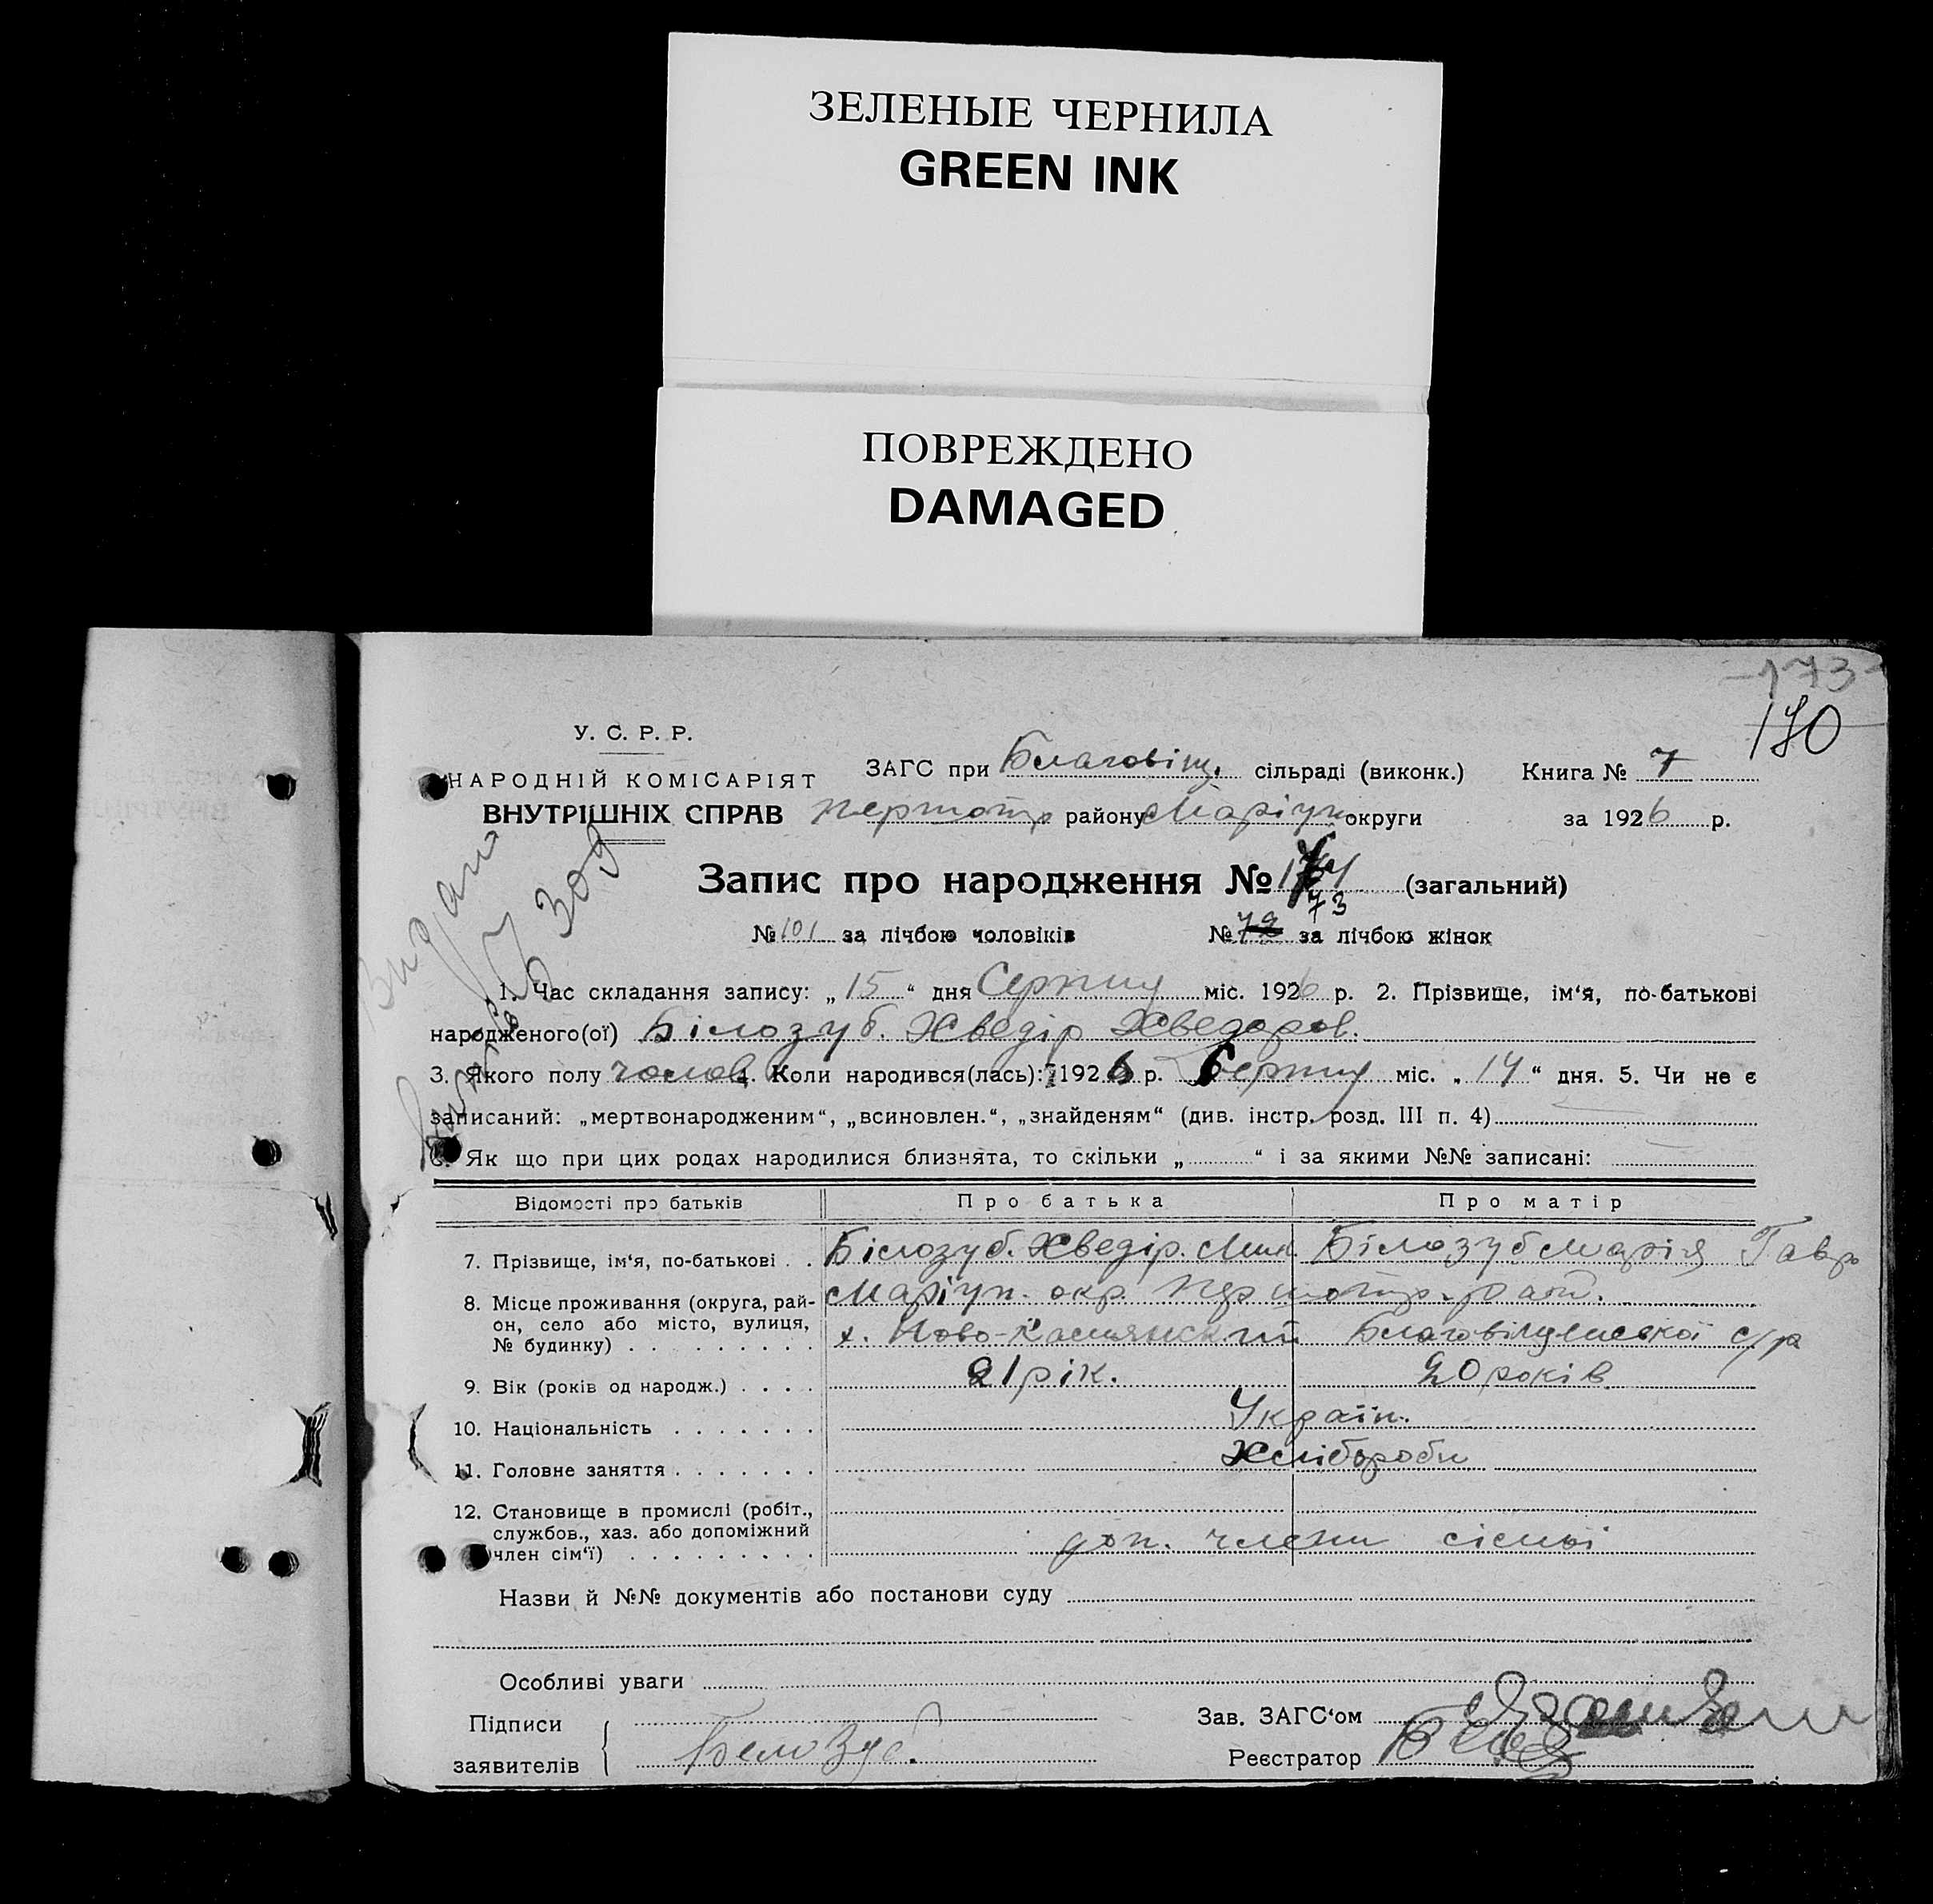 ЗЕЛЕНЫЕ ЧЕРНИЛА
GREEN INK
ПОВРЕЖДЕНО
DAMAGED
-173-
170
У. С. Р. Р.
НАРОДНІЙ КОМІСАРІЯТ
ВНУТРІШНІХ СПРАВ
ЗАГС при Благовіщ. сільраді (виконк.) Книга № 7
району Маріуп. округи за 1926 р.
Запис про народження № (загальний)
73
№ 101 за лічбою чоловіків № 72 за лічбою жінок
Видано
1. Час складання запису: „15“ дня Серпня міс. 1926 р. 2. Прізвище, ім‘я, по-батькові
народженого(ої) Білозуб. Хведір Хведоров.
3. Якого полу чолов 4. Коли народився(лась): 1926 р. Серпня міс. „14“ дня. 5. Чи не є
записаний: „мертвонародженим“, „всиновлен.“, „знайденям“ (див. інстр. розд. III п. 4)
6. Як що при цих родах народилися близнята, то скільки „ “ і за якими №№ записані:
Відомості про батьків Про батька Про матір
7. Прізвище, ім‘я, по-батькові . . Білозуб. Хведір. Мих. Білозуб Марія Гавр
8. Місце проживання (округа, рай- Маріуп. окр.
он, село або місто, вулиця,
№ будинку) х. Ново- Благовіщенської с/р
9. Вік (років од народж.) . . . . 21 рік. 20 років
10. Національність . . . . . . . Україн.
11. Головне заняття . . . . . . . Хлібороби
12. Становище в промислі (робіт.,
службов., хаз. або допоміжний
член сім‘ї) . . . . . . . . . доп. члени сім'ї
Назви й №№ документів або постанови суду
Особливі уваги
Підписи
заявителів Белозуб.
Зав. ЗАГС‘ом
Реєстратор